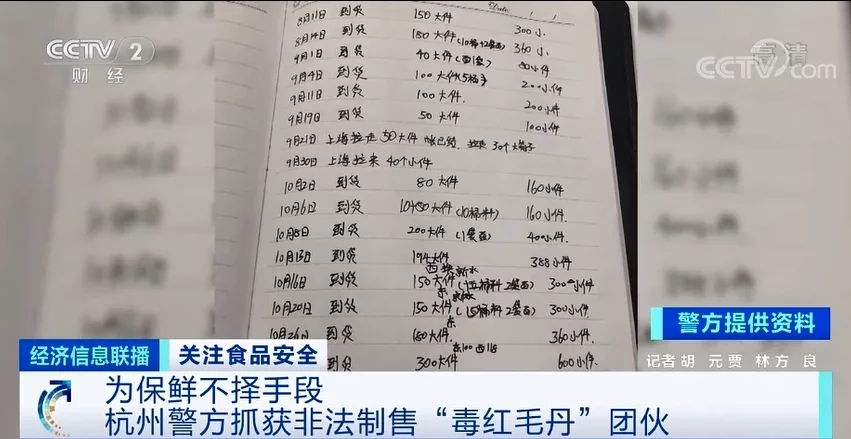 CCTV 2
财经
高清
CCTV.com
Date
8月11日 到货 150大件 300小
8月14日 到货 180大件 360小
9月1日 到货 40大件 80小件
9月4日 到货 100大件 200小件
9月11日 到货 100大件. 200小件
9月19日 到货 50大件 100小件
9月21日 上海拉走50大件 30个大箱子
9月30日 上海拉来 40个小件
10月2日 到货 80大件 160小件
10月6日 到货 160小件.
10月8日 到货 200大件 400小件.
10月13日 到货 194大件 388小件
10月16日 到货 150大件 300小件
10月20日 到货 150大件 300小件.
10月26日 到货 180大件. 360小件.
到货 300大件 600小件.
警方提供资料
记者 胡 元 贾 林 方 良
经济信息联播 关注食品安全
为保鲜不择手段
杭州警方抓获非法制售“毒红毛丹”团伙